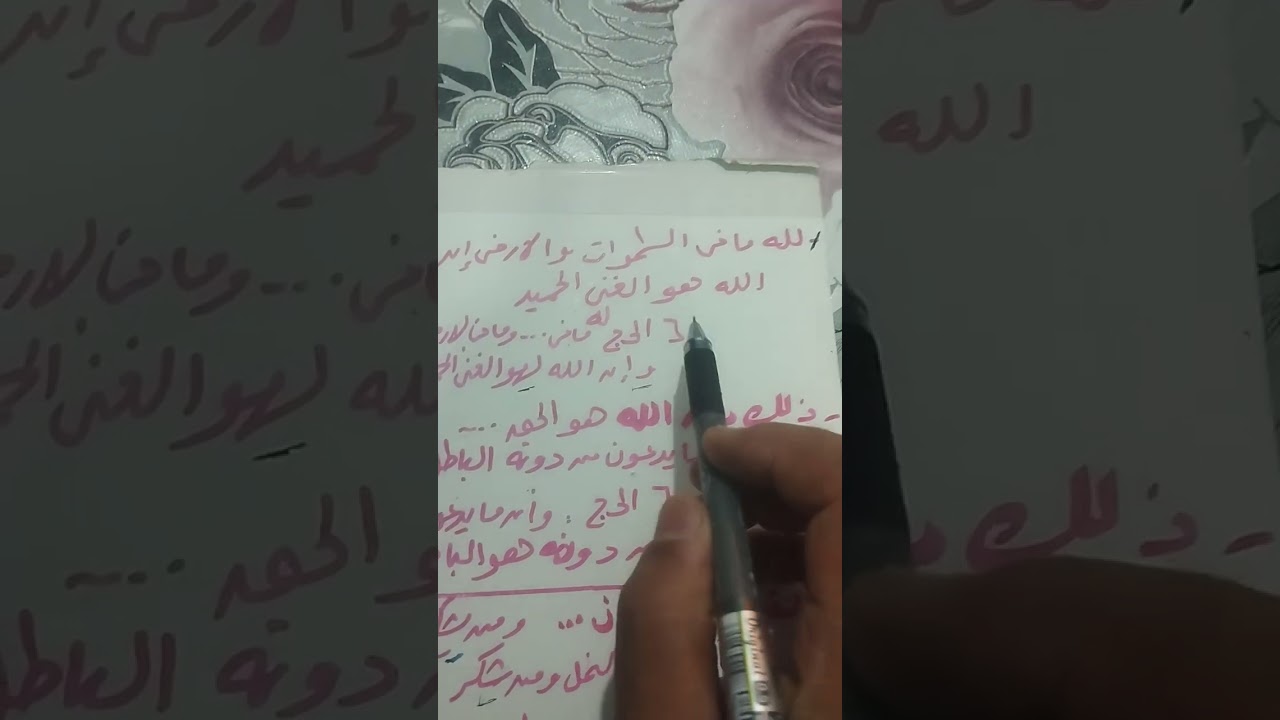 لله ما فى السموات والارض إن
الله هو الغنى الحميد
٦ الحج له مافى ... وما فى الار
وإن الله لهو الغنى الح
- ذلك الله هو الحق ....
ما يدعون من دونه الباط
٦ الحج : وأن ما يدعو
دونه هو البا
... ومن يشك
النمل ومن شكر